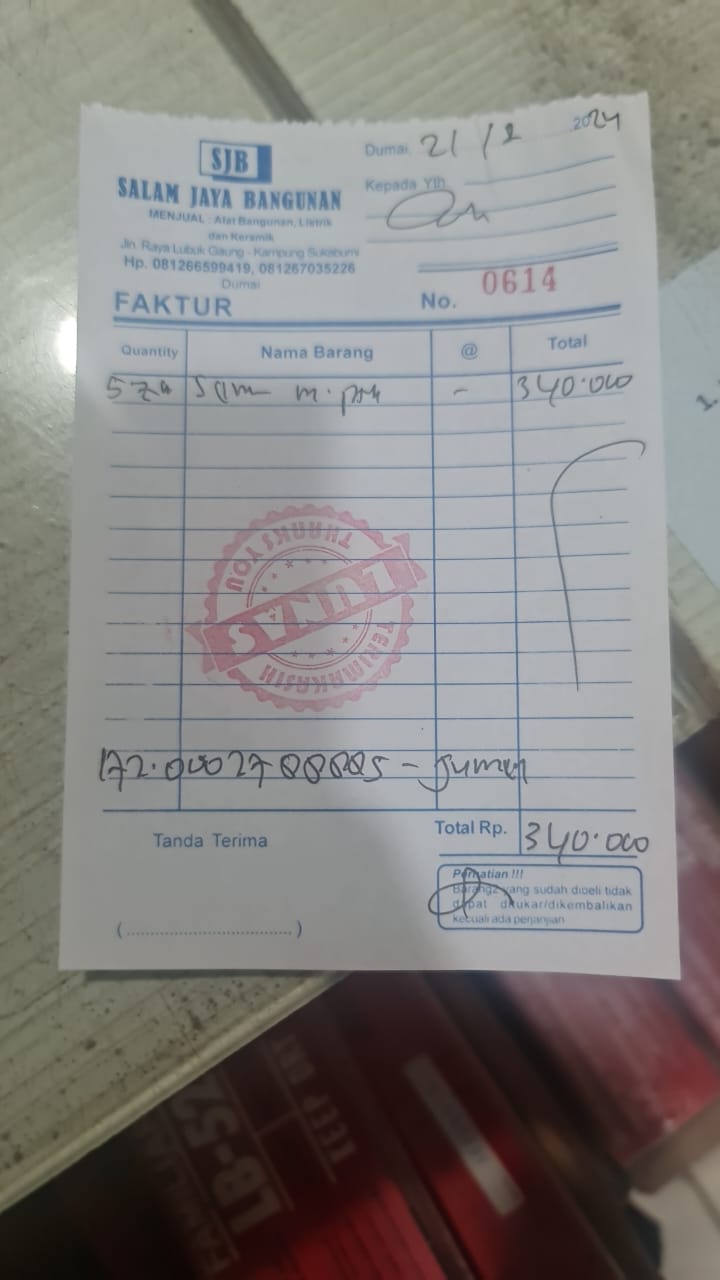 SJB
SALAM JAYA BANGUNAN
MENJUAL : Alat Bangunan, Listrik
dan Keramik
Jln. Raya Lubuk Gaung - Kampung Sukabumi
Hp. 081266599419, 081267035226
Dumai
Dumai, 21/2 2024
Kepada Yth
FAKTUR
No. 0614
Quantity Nama Barang @ Total
- 340.000
THANKS YOU
LUNAS
TERIMAKASIH
Tanda Terima
Total Rp. 340.000
Perhatian !!!
Barang2 yang sudah dibeli tidak
dapat ditukar/dikembalikan
kecuali ada perjanjian
(................................)
FAMILIA
LB-52
KEEP DRY